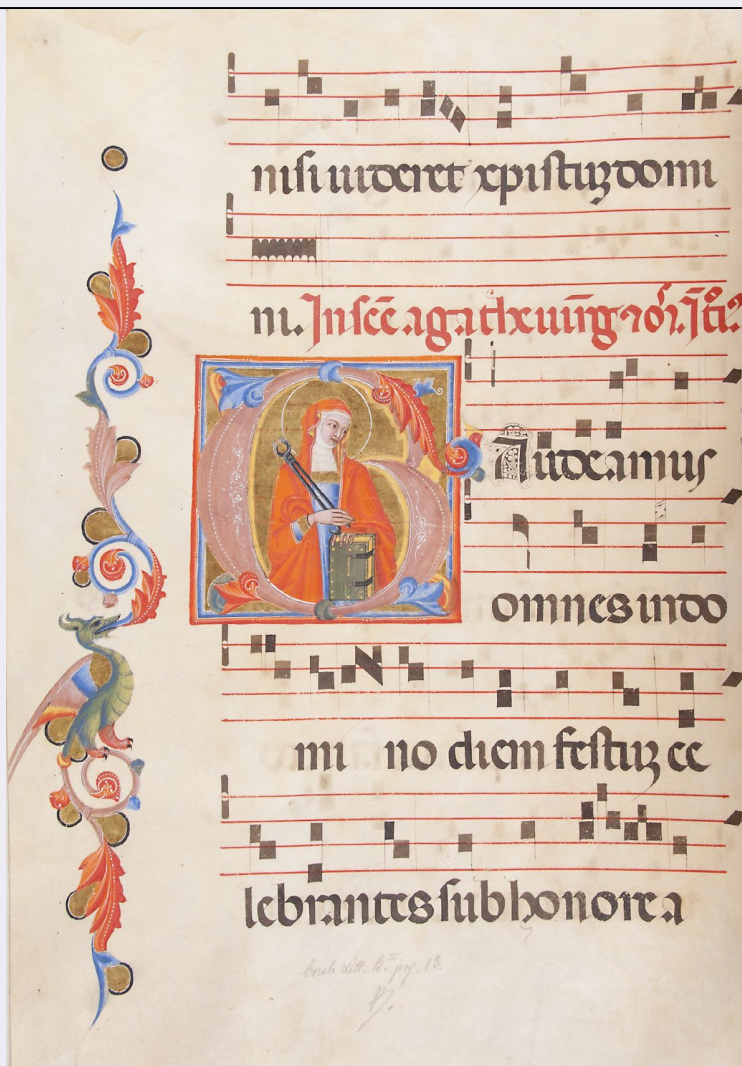 nisi uideret xpistuz domi
ni. In scē agathe uirg
G Audeamus
omnes in do
mi no diem festuz ce
lebrantes sub honore a
pag. 13.